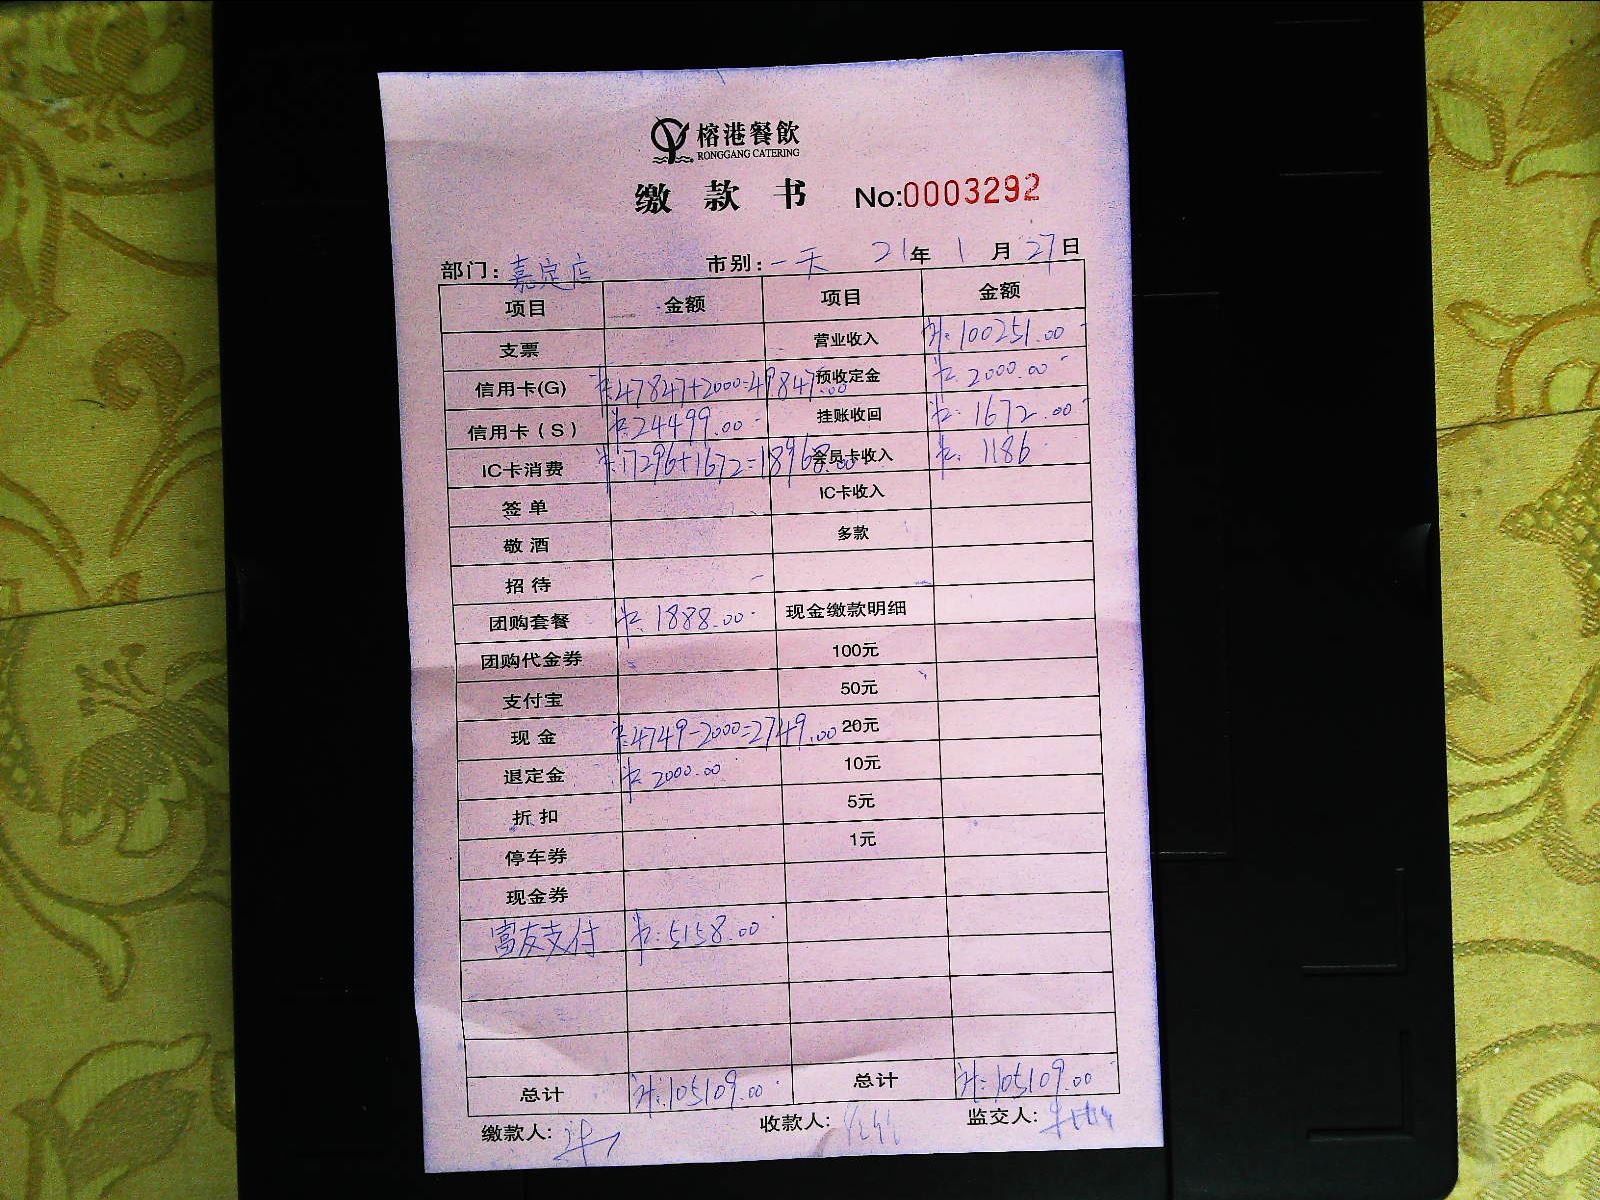 榕港餐飲
RONGGANG CATERING
缴 款 书 No:0003292
部门：嘉定店 市别：一天 21年 1月 27日
项目 金额 项目 金额
支票 营业收入 计：100251.00
信用卡(G) 卡：47847+2000=49847.00 预收定金 卡：2000.00
信用卡（S） 卡：24499.00 挂账收回 卡：1672.00
IC卡消费 卡：17296+1672=18968.00 会员卡收入 卡：1186
签单 IC卡收入
敬酒 多款
招待
团购套餐 卡：1888.00 现金缴款明细
团购代金券 100元
支付宝 50元
现金 卡：4749-2000=2749.00 20元
退定金 卡：2000.00 10元
折扣 5元
停车券 1元
现金券
富友支付 卡：5158.00
总计 计：105109.00 总计 计：105109.00
缴款人： 收款人： 监交人：